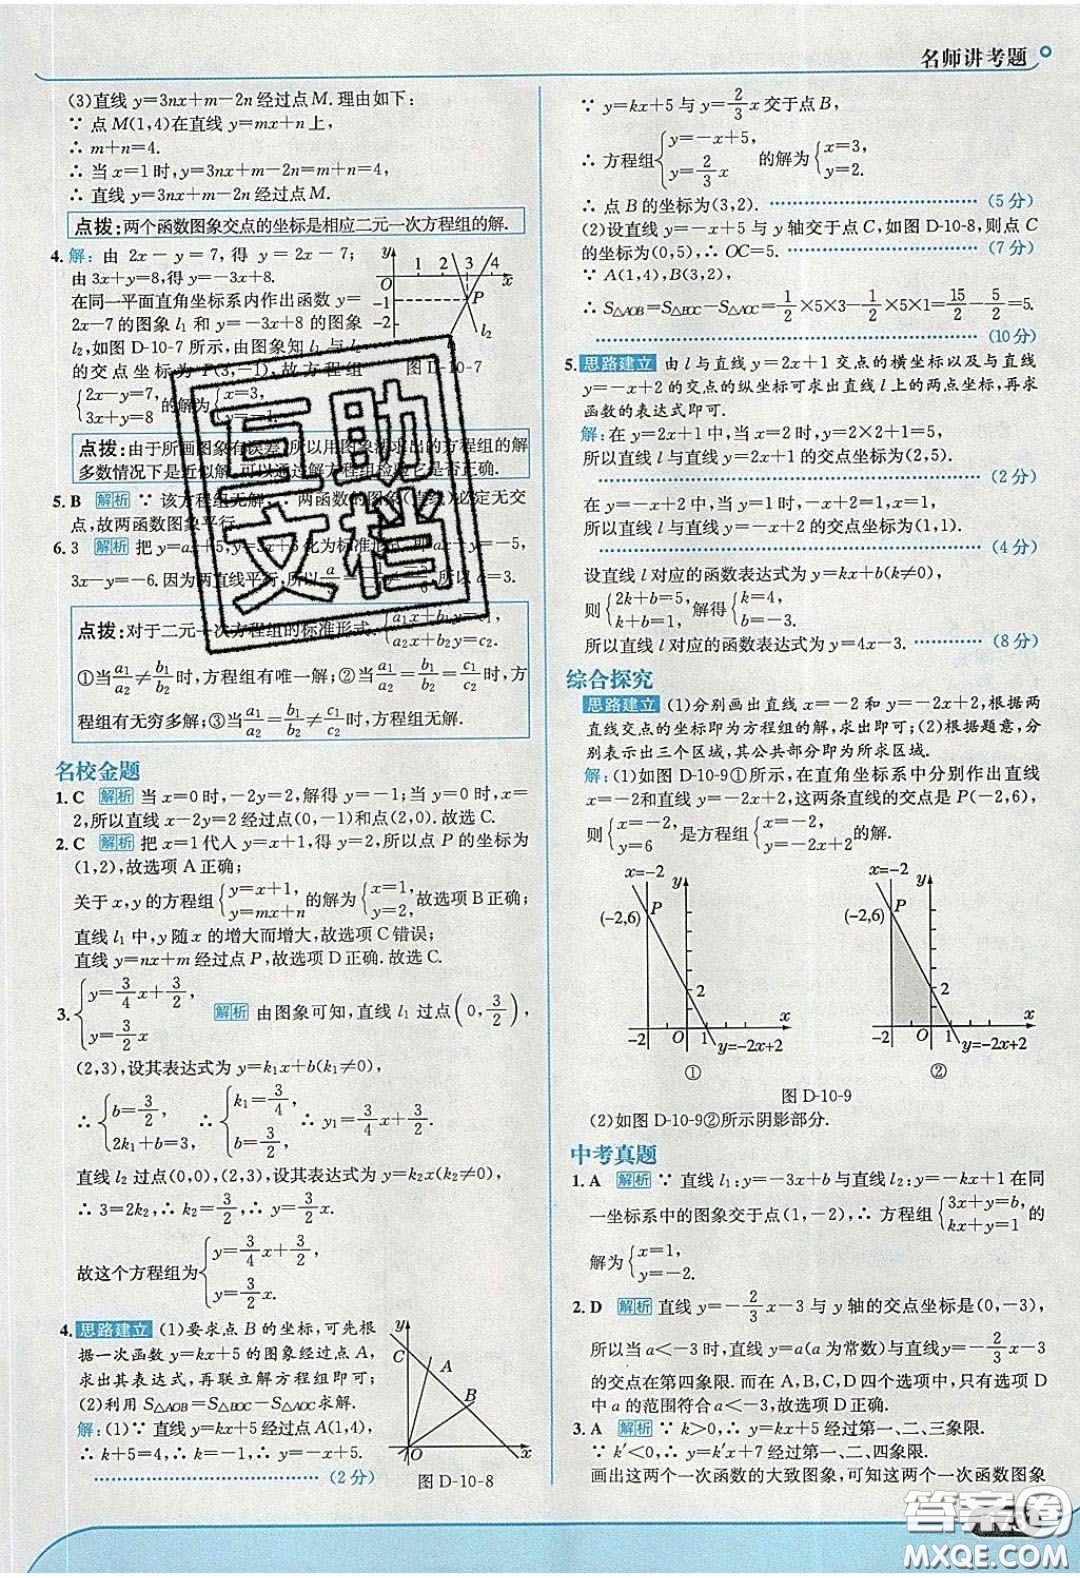 名师讲考题
(3)直线 y=3nx+m-2n 经过点 M. 理由如下:
∵ 点 M(1,4)在直线 y=mx+n 上,
∴ m+n=4.
∴ 当 x=1 时, y=3nx+m-2n=m+n=4.
∴ 直线 y=3nx+m-2n 经过点 M.
点拨:两个函数图象交点的坐标是相应二元一次方程组的解.
4. 解: 由 2x-y=7, 得 y=2x-7;
由 3x+y=8, 得 y=-3x+8.
在同一平面直角坐标系内作出函数 y=
2x-7 的图象 l₁ 和 y=-3x+8 的图象
l₂, 如图 D-10-7 所示, 由图象知 l₁ 与 l₂
的交点坐标为 P(3,-1), 故方程组
{2x-y=7, 3x+y=8 的解为 {x=3, y=-1.
y
1 2 3 4
x
-1
P
-2
l₂
图 D-10-7
点拨:由于所画图象有误差, 所以用图象法求出的方程组的解
多数情况下是近似解, 可以通过解方程组检验它是否正确.
5. B 解析 ∵ 该方程组无解, ∴ 两函数的图象(直线)必定无交
点, 故两函数图象平行.
6. 3 解析 把 y=ax+5, y=3x+6 化为标准形式, 即 ax-y=-5,
3x-y=-6. 因为两直线平行, 所以 所以 a=3.
点拨:对于二元一次方程组的标准形式 {a₁x+b₁y=c₁, a₂x+b₂y=c₂.
①当 a₁/a₂ ≠ b₁/b₂ 时, 方程组有唯一解; ②当 a₁/a₂ = b₁/b₂ = c₁/c₂ 时, 方
程组有无穷多解; ③当 a₁/a₂ = b₁/b₂ ≠ c₁/c₂ 时, 方程组无解.
互助
文档
名校金题
1. C 解析 当 x=0 时, -2y=2, 解得 y=-1; 当 y=0 时, x=
2, 所以直线 x-2y=2 经过点(0,-1)和点(2,0). 故选 C.
2. C 解析 把 x=1 代人 y=x+1, 得 y=2, 所以点 P 的坐标为
(1,2), 故选项 A 正确;
关于 x,y 的方程组 {y=x+1, y=mx+n 的解为 {x=1, y=2, 故选项 B 正确;
直线 l₁ 中, y 随 x 的增大而增大, 故选项 C 错误;
直线 y=nx+m 经过点 P, 故选项 D 正确. 故选 C.
3. {y=3/4x+3/2, y=3/2x 解析 由图象可知, 直线 l₁ 过点(0,3/2),
(2,3), 设其表达式为 y=k₁x+b(k₁≠0).
∴ {b=3/2, 2k₁+b=3, ∴ {k₁=3/4, b=3/2. ∴ y₁=3/4x+3/2.
直线 l₂ 过点(0,0),(2,3), 设其表达式为 y=k₂x(k₂≠0),
∴ 3=2k₂, ∴ k₂=3/2, ∴ y=3/2x.
故这个方程组为 {y=3/4x+3/2, y=3/2x.
4. 思路建立 (1)要求点 B 的坐标, 可先根
据一次函数 y=kx+5 的图象经过点 A,
求出其表达式, 再联立解方程组即可;
(2)利用 S△AOB=S△BOC-S△AOC 求解.
解:(1)∵ 直线 y=kx+5 经过点 A(1,4),
∴ k+5=4, ∴ k=-1, ∴ y=-x+5.
(2分)
y
C
A
B
O
x
图 D-10-8
∵ y=kx+5 与 y=2/3x 交于点 B,
∴ 方程组 {y=-x+5, y=2/3x 的解为 {x=3, y=2.
∴ 点 B 的坐标为(3,2). (5分)
(2)设直线 y=-x+5 与 y 轴交于点 C, 如图 D-10-8, 则点 C
的坐标为(0,5), ∴ OC=5. (7分)
∵ A(1,4), B(3,2),
∴ S△AOB=S△BOC-S△AOC=1/2×5×3-1/2×5×1=15/2-5/2=5.
(10分)
5. 思路建立 由 l 与直线 y=2x+1 交点的横坐标以及与直线
y=-x+2 的交点的纵坐标可求出直线 l 上的两点坐标, 再求
函数的表达式即可.
解:在 y=2x+1 中, 当 x=2 时, y=2×2+1=5,
所以直线 l 与直线 y=2x+1 的交点坐标为(2,5).
(2分)
在 y=-x+2 中, 当 y=1 时, -x+2=1, x=1,
所以直线 l 与直线 y=-x+2 的交点坐标为(1,1).
(4分)
设直线 l 对应的函数表达式为 y=kx+b(k≠0),
则 {2k+b=5, k+b=1, 解得 {k=4, b=-3.
所以直线 l 对应的函数表达式为 y=4x-3. (8分)
综合探究
思路建立 (1)分别画出直线 x=-2 和 y=-2x+2, 根据两
直线交点的坐标即为方程组的解, 求出即可; (2)根据题意, 分
别表示出三个区域, 其公共部分即为所求区域.
解:(1)如图 D-10-9①所示, 在直角坐标系中分别作出直线
x=-2和直线 y=-2x+2, 这两条直线的交点是 P(-2,6),
则 {x=-2, y=6 是方程组 {x=-2, y=-2x+2 的解.
x=-2
y
(-2,6)
P
2
x
-2
O
1
y=-2x+2
①
x=-2
y
(-2,6)
P
2
x
-2
O
1
y=-2x+2
②
图 D-10-9
(2)如图 D-10-9②所示阴影部分.
中考真题
1. A 解析 ∵ 直线 l₁:y=-3x+b 与直线 l₂:y=-kx+1 在同
一坐标系中的图象交于点(1,-2), ∴ 方程组 {3x+y=b, kx+y=1 的
解为 {x=1, y=-2.
2. D 解析 直线 y=-2/3x-3 与 y 轴的交点坐标是(0,-3),
所以当 a<-3 时, 直线 y=a(a 为常数)与直线 y=-2/3x-3
的交点在第四象限. 而在 A,B,C,D 四个选项中, 只有选项 D
中 a 的范围符合 a<-3, 故选 D.
3. A 解析 ∵ k>0, ∴ y=kx+5 经过第一、二、三象限.
∵ k′<0, ∴ y=k′x+7 经过第一、二、四象限.
画出这两个一次函数的大致图象, 可知这两个一次函数图象
答案圈
MXQE.COM